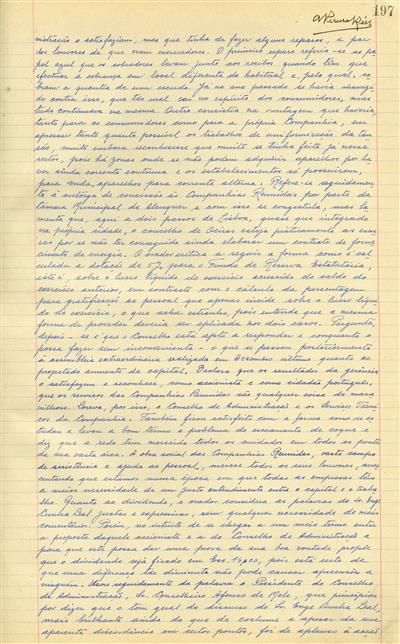 A Pereira Reis
197
nistração o satisfaziam, mas que tinha de fazer alguns reparos, a par
dos louvores de que eram merecedores. O primeiro reparo referia-se ao pa-
pel azul que os cobradores levam junto aos recibos quando têm que
efectuar a cobrança em local diferente do habitual e, pelo qual, co-
bram a quantia de um escudo. Já no ano passado se havia insurgi-
do contra isso, que tão mal cai no espírito dos consumidores, mas
tudo continuava na mesma. Outro consistia na vantagem que haveria
tanto para os consumidores como para a própria Companhia, em
apressar tanto quanto possível os trabalhos de uniformização da ten-
são, muito embora reconhecesse que muito se tinha feito já nesse
sector, pois há zonas onde se não podem adquirir aparelhos por ha-
ver ainda corrente contínua e os estabelecimentos só possuirem,
para venda, aparelhos para corrente alterna. Refere-se seguidamen-
te à outorga de concessão às Companhias Reunidas por parte da
Câmara Municipal de Alenquer e com isso se congratula, mas la-
menta que, aqui a dois passos de Lisboa, quase que integrado
na própria cidade, o concelho de Oeiras esteja pràticamente às escu-
ras por se não ter conseguido ainda elaborar um contrato de forne-
cimento de energia. O orador critica a seguir a forma como é cal-
culada a dotação de 5%, para o Fundo de Reserva Estatutária,
isto é, sobre o lucro líquido do exercício acrescido do saldo do
exercício anterior, em contraste com o cálculo da percentagem
para gratificação ao pessoal que apenas incide sobre o lucro líqui-
do do exercício, o que acha estranho, pois entende que a mesma
forma de proceder deveria ser aplicada nos dois casos. Pergunta,
depois - se é que o Conselho está apto a responder e conquanto o
possa fazer sem inconveniente - o que se passou posteriormente
à assembleia extraordinária realizada em Dezembro último quanto ao
projectado aumento de capital. Declara que os resultados da gerência
o satisfazem e reconhece, como accionista e como cidadão português,
que os serviços das Companhias Reunidas são qualquer coisa de mara-
vilhoso. Louva, por isso, o Conselho de Administração e os Corpos Técni-
cos da Companhia. Também ficou satisfeito com a forma como se es-
tudou e levou a bom termo o problema do escoamento de coque e
diz que a rede tem merecido todos os cuidados em todos os pontos
da sua vasta área. A obra social das Companhias Reunidas, vasto campo
de assistência e ajuda ao pessoal, merece todos os seus louvores, acres-
centando que estamos numa época em que todas as empresas têm
a maior necessidade de um justo entendimento entre o capital e o traba-
lho. Quanto ao dividendo, o orador considera as palavras do Sr. Engº
Cunha Leal justas e expressivas, sem qualquer necessidade de mais
comentários. Porém, no intuito de se chegar a um meio termo entre
a proposta daquele accionista e a do Conselho de Administração e
para que este possa dar uma prova da sua boa vontade propõe
que o dividendo seja fixado em pois está certo de
que uma diferença tão diminuta não pode causar apreensões a
ninguém. Usou seguidamente da palavra o Presidente do Conselho
de Administração, Sr. Conselheiro Afonso de Melo, que principiou
por dizer que o tom geral do discurso do Sr. Engº Cunha Leal,
mais brilhante ainda do que de costume e apesar da sua
aparente discordância em certos pontos, foi de aplauso à acção